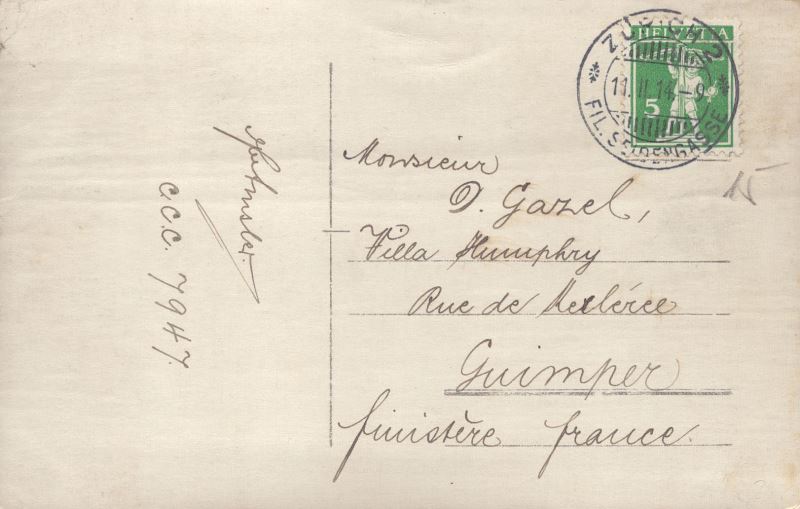 HELVETIA
5
ZÜRICH 2
11.II.14-9
FIL. SEIDENGASSE
15
Monsieur
D. Gazel,
Villa Humphry
Rue de
Guimper
finistère france.
C.C.C. 7947.